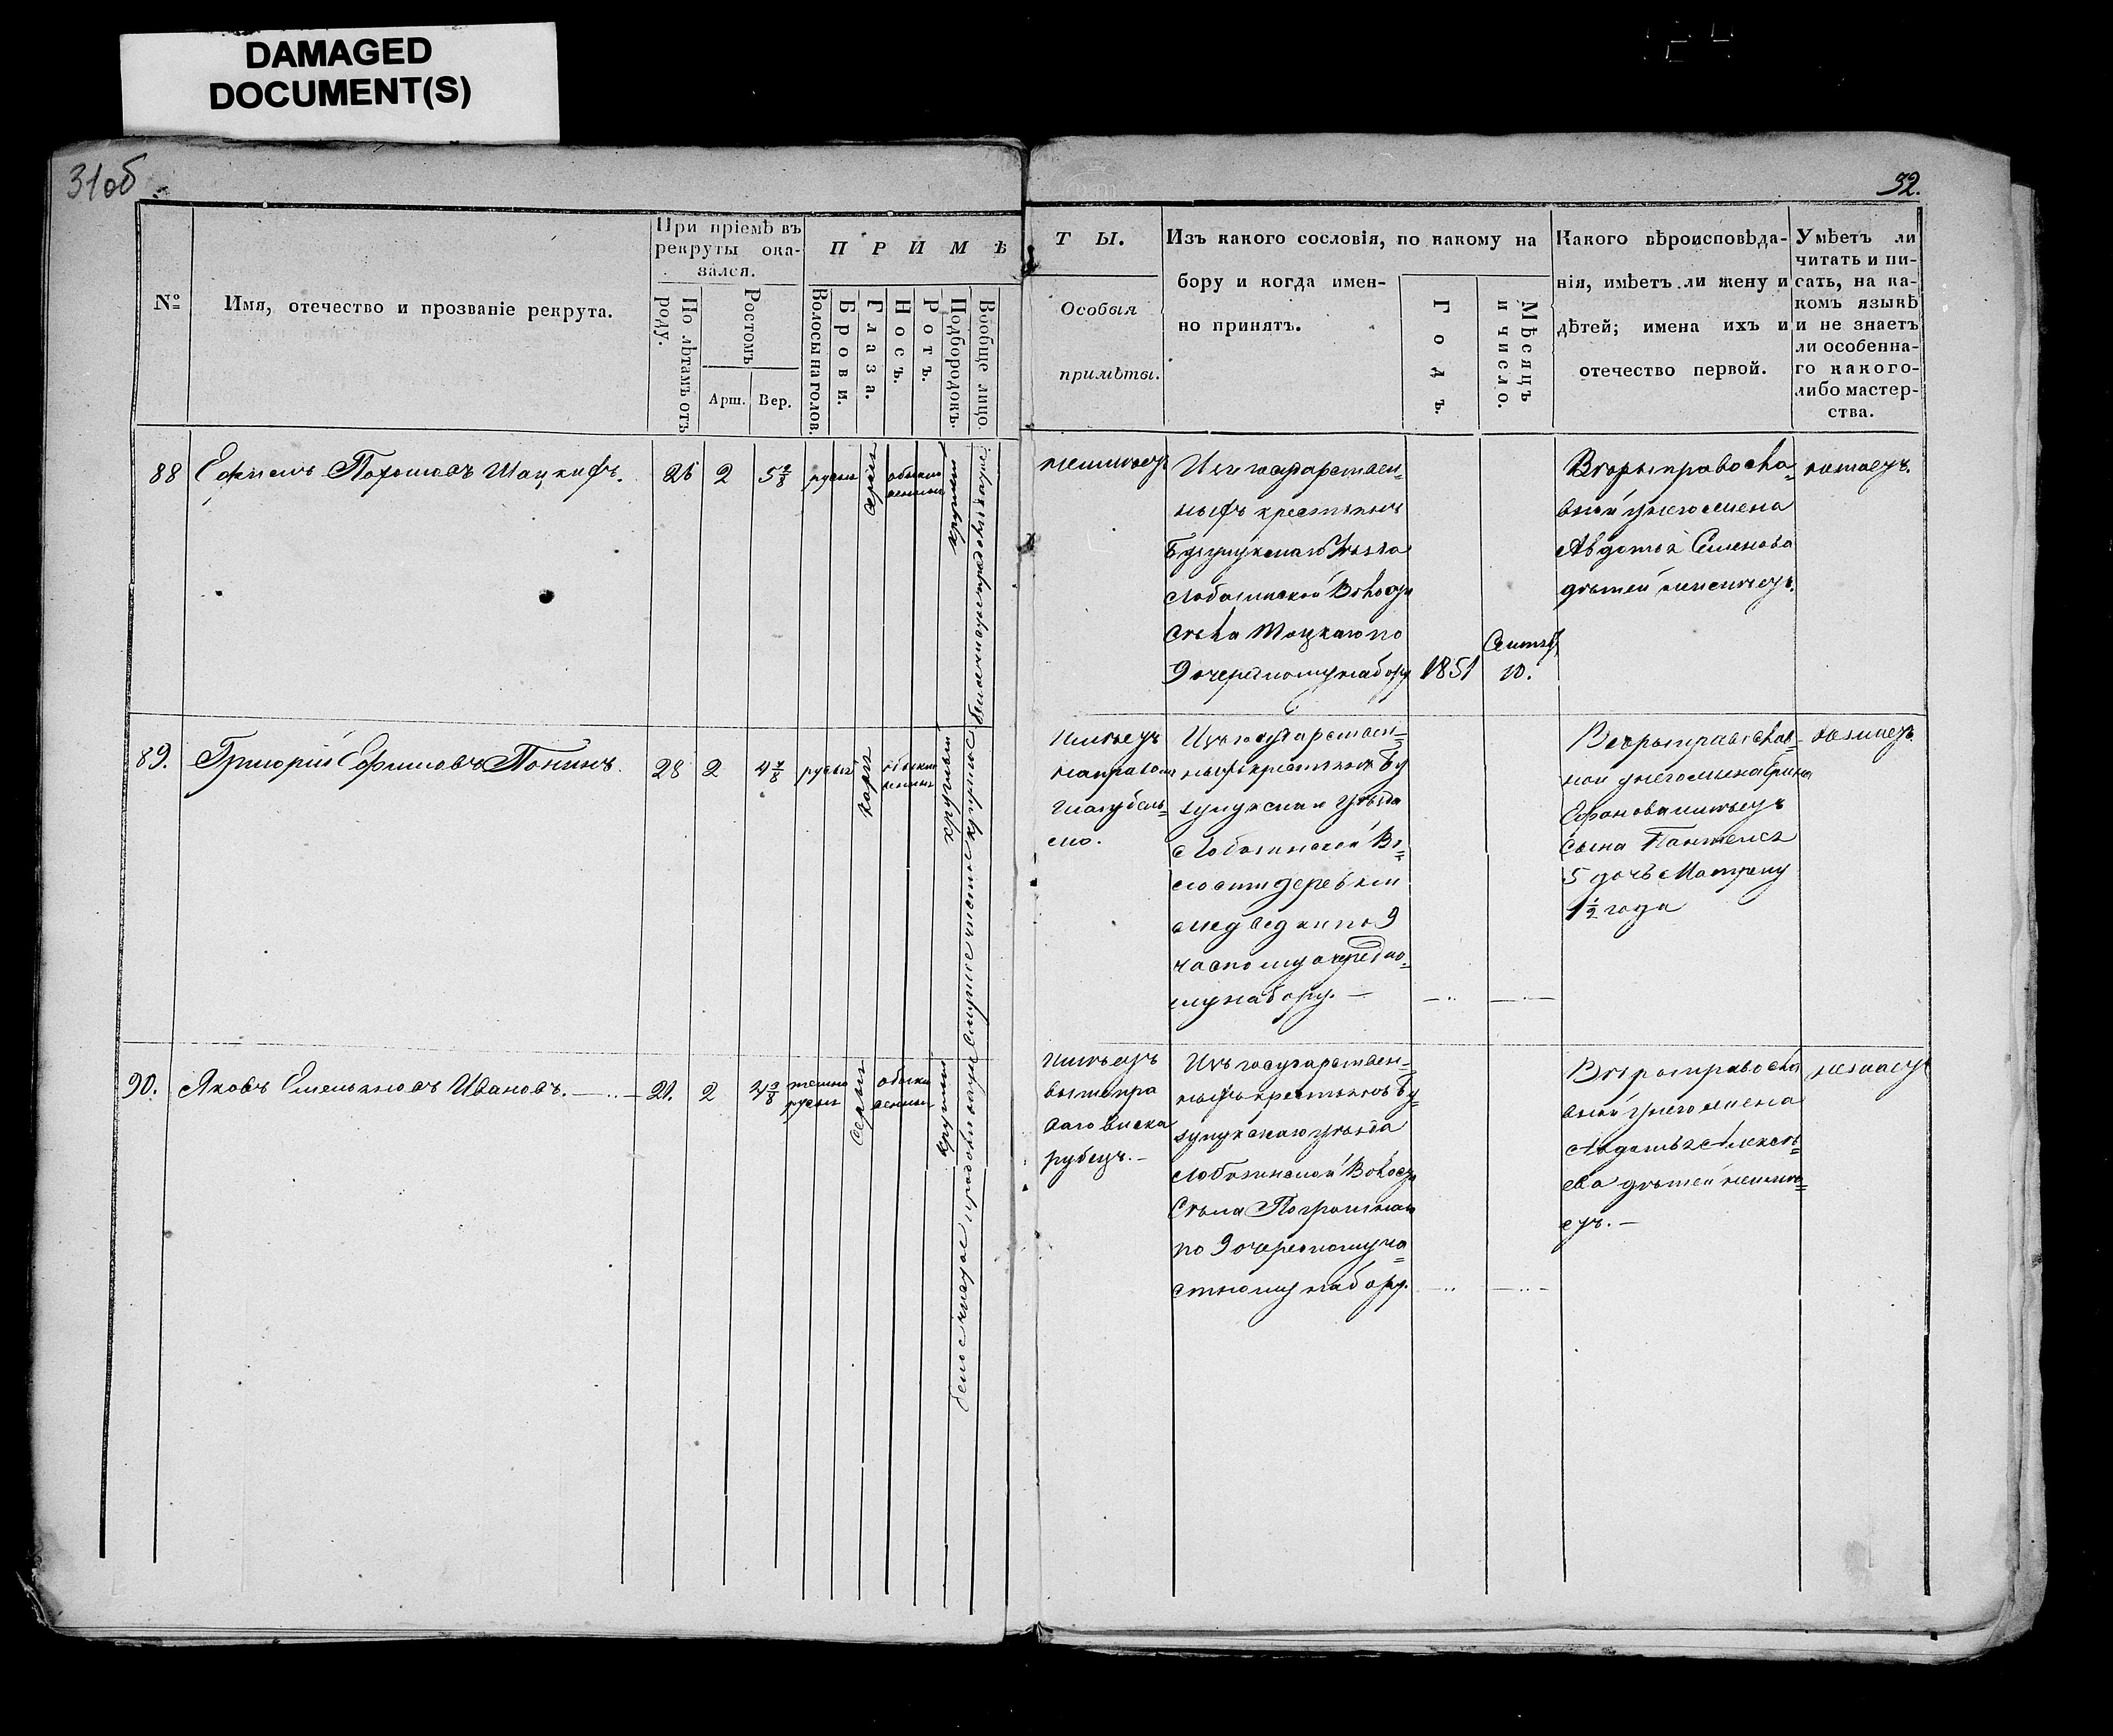 DAMAGED
DOCUMENT(S)
31об
32.
№
Имя, отечество и прозваніе рекрута.
При пріемѣ въ
рекруты ока-
зался.
По лѣтамъ отъ
роду.
Ростомъ
Арш.
Вер.
ПРИМѢ
Волосы на голов.
Брови.
Глаза.
Носъ.
Ротъ.
Подбородокъ.
Вообще лицо.
ТЫ.
Особыя
примѣты.
Изъ какого сословія, по какому на
бору и когда имен-
но принятъ.
Годъ.
Мѣсяцъ
и число.
Какого вѣроисповѣда-
нія, имѣетъ ли жену и
дѣтей; имена ихъ и
отечество первой.
Умѣетъ ли
читать и пи-
сать, на ка-
комъ языкѣ
и не знаетъ
ли особенна-
го какого-
либо мастер-
ства.
88
Ефимъ
2
5
русые
серые
обыкно
венные
круглый
неимѣетъ
Изъ государствен=
ныхъ крестьянъ
Бузулукскаго Уѣзда
Лобазинской Волости
Села Тоцкаго по
9 очередному набору
1851
Сентяб
10.
Вѣры православ=
ной у него жена
Авдотья Семенова
дѣтей неимѣетъ.
незнаетъ.
89.
Григорий Ефимовъ Понинъ.
28
2
4 7/8
русые
карие
обыкно
венные
круглый
смуглое чистое круглое
Имѣетъ
на правом
Изъ государствен=
ныхъ крестьянъ Бу
зулукскаго уѣзда
Лобазинской Во=
лости деревни
Медведки по 9
частному очередно=
му набору. —
Вѣры православ=
ной у него жена Ирина
имѣетъ
сына Пантелея
5 дочь Матрену
1½ года
незнаетъ.
90.
Яковъ Емельяновъ Ивановъ. —
21.
2
4 3/8
темно
русые
серые
обыкно
венные
круглый
Имѣетъ
ваго виска
рубецъ. —
Изъ государствен=
ныхъ крестьянъ Бу=
зулукскаго уѣзда
Лобазинской Волости
Села Погромнаго
по 9 очередному ча=
стному набору.
Вѣры православ
ной у него жена
Авдотья Алексѣ=
ева дѣтей неимѣ=
етъ. —
незнаетъ